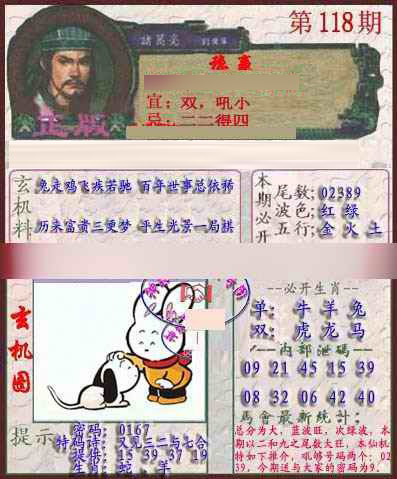 第118期
諸葛亮
正版
宜: 双, 吼小
忌: 二二得四
玄机料
兔走鸡飞疾若驰 百年世事总依稀
历来富贵三更梦 平生光景一局棋
本期必开
尾数: 02389
波色: 红 绿
五行: 金 火 土
玄机图
--必开生肖--
单: 牛 羊 兔
双: 虎 龙 马
内部泄码
09 21 45 15 39
08 32 06 42 40
馬會最新統計:
总分为大, 蓝波旺, 次绿波, 本
期以二和九之尾数大旺, 本仙机
特如下推介, 吼够号码两个: 02
39, 今期送与大家的密码为9.
提示
密码: 0167
特码诗: 又见三一与七合
提供: 15 39 37 19
生肖: 蛇、羊